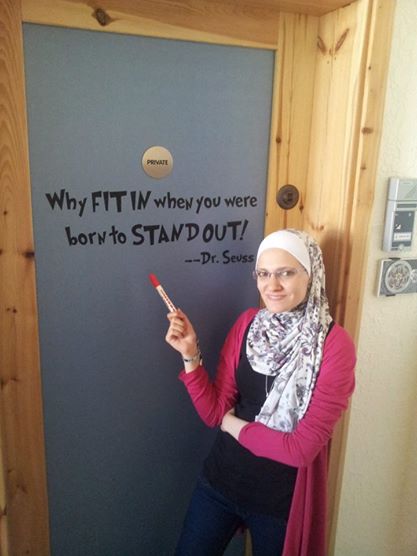 PRIVATE
Why FIT IN when you were
born to STAND OUT!
---Dr. Seuss